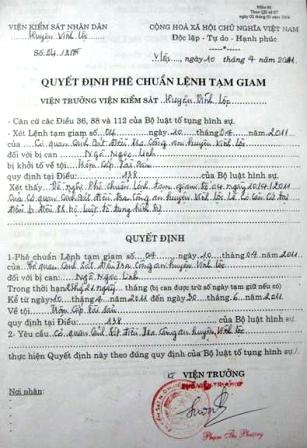 Mẫu 81
Theo QĐ số 07
ngày 02 tháng 01 năm 2008
VIỆN KIỂM SÁT NHÂN DÂN
Huyện Vĩnh Lộc
Số: 04
CỘNG HOÀ XÃ HỘI CHỦ NGHĨA VIỆT NAM
Độc lập - Tự do - Hạnh phúc
V.Lộc, ngày 10 tháng 4 năm 2011
QUYẾT ĐỊNH PHÊ CHUẨN LỆNH TẠM GIAM
VIỆN TRƯỞNG VIỆN KIỂM SÁT Huyện Vĩnh Lộc
- Căn cứ các Điều 36, 88 và 112 của Bộ luật tố tụng hình sự.
- Xét Lệnh tạm giam số 04 ngày 10 tháng 04 năm 2011
của Cơ quan Cảnh Sát Điều Tra Công an huyện Vĩnh Lộc
đối với bị can Ngô Ngọc Linh
bị khởi tố về tội Trộm Cắp Tài Sản
quy định tại Điều 138 của Bộ luật hình sự.
Xét thấy: Đề nghị Phê chuẩn lệnh tạm giam số 04 ngày 10/4/2011
Của Cơ quan Cảnh Sát Điều tra Công an huyện Vĩnh Lộc là có căn cứ
Bộ luật tố tụng hình sự
QUYẾT ĐỊNH
1-Phê chuẩn Lệnh tạm giam số 04 ngày 10 tháng 04 năm 2011
của Cơ quan Cảnh Sát Điều Tra Công an huyện Vĩnh Lộc
đối với bị can: Ngô Ngọc Linh
Trong thời hạn ngày (bị can được trừ số ngày tạm giữ nếu có)
Kể từ ngày 10 tháng 4 năm 2011 đến ngày 30 tháng 6 năm 2011
Về tội: Trộm Cắp Tài Sản
quy định tại Điều: 138 của Bộ luật hình sự.
2 - Yêu cầu Cơ quan Cảnh Sát Điều Tra Công an huyện Vĩnh Lộc
thực hiện Quyết định này theo đúng quy định của Bộ luật tố tụng hình sự./.
Nơi nhận:
VIỆN TRƯỞNG
Phạm Thị Phượng